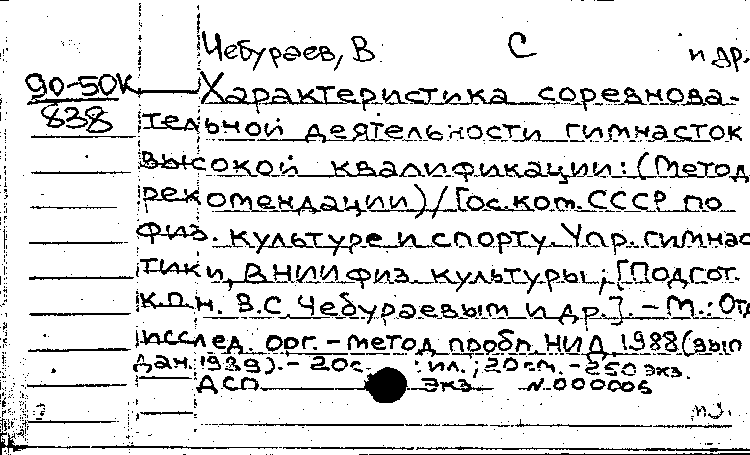 Чебураев, В. С и др.
90-50К Характеристика соревнова-
838 тельной деятельности гимнасток
высокой квалификации: (Метод
рекомендации) / Гос. ком. СССР по
физ. культуре и спорту. Упр. гимнас
тики, ВНИИ физ. культуры; [Подгот.
к.п.н. В.С. Чебураевым и др.]. - М.: Отд
исслед. орг. - метод пробл. НИД, 1988 (вып
дан. 1989). - 20 с. : ил.; 20 см. - 250 экз.
ДСП экз N 000006